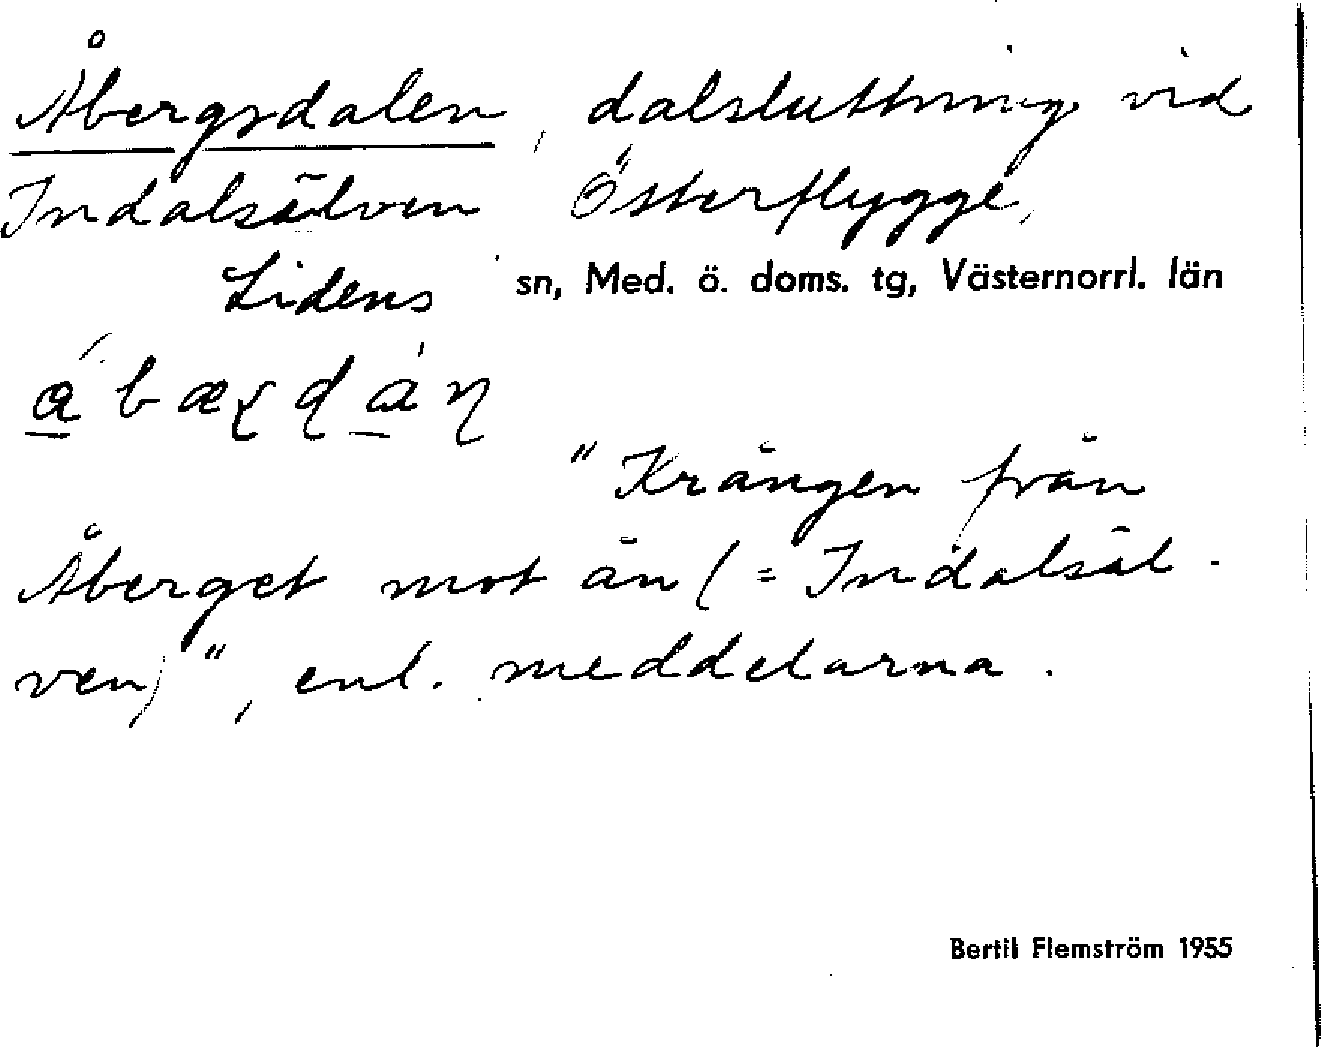 Åbergsdalen, dalsluttning vid
Indalsälven Österflygge,
Lidens sn, Med. ö. doms. tg, Västernorrl. län
"Krången från
Åberget mot ån (= Indalsäl-
ven)", enl. meddelarna.
Bertil Flemström 1955